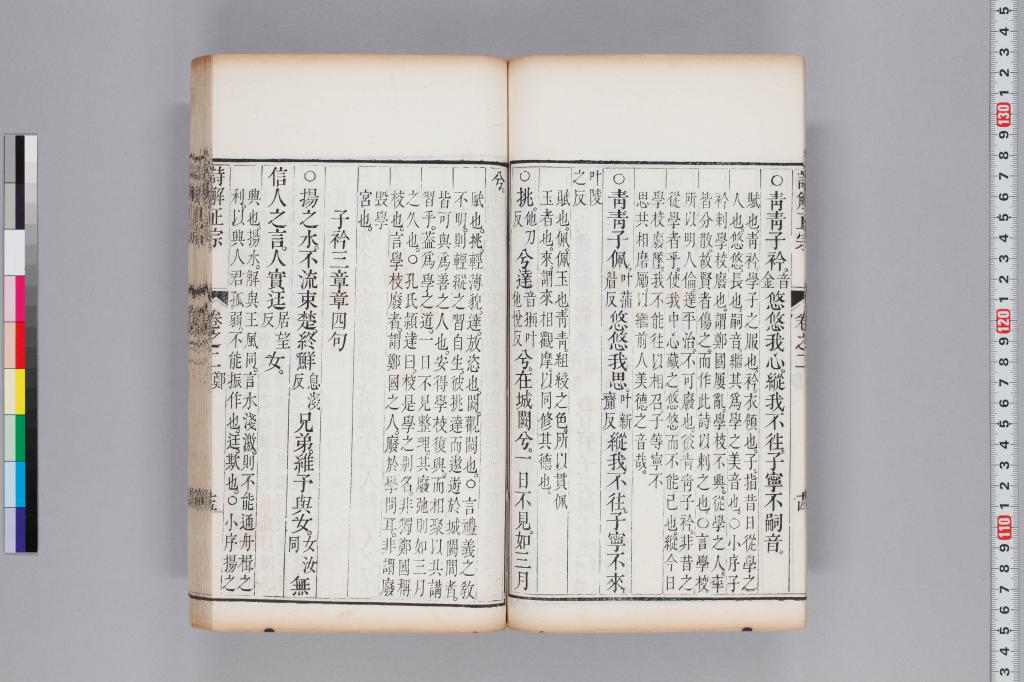 ○靑靑子衿音金悠悠我心縱我不徃子寧不嗣音
賦也靑衿學子之服也衿衣領也子指昔日從學之
人也悠悠長也嗣音繼其爲學之美音也○小序子
衿刺學校廢也謂鄭國屢亂學校不興從學之人率
皆分散故賢者傷之而作此詩以刺之也○言學校
所以明人倫達平治不可廢也彼靑靑子衿非昔之
從學者乎使我中心藏之悠悠而不能已也縱今日
學校廢墜我不能往以相召子等寧不
思共相磨厲以繼前人美德之音哉
○靑靑子佩叶蒲眉反悠悠我思叶新齎反縱我不往子寧不來
叶陵之反
賦也佩佩玉也靑靑組綬之色所以貫佩
玉者也來謂來相觀摩以同修其德也
○挑他刀反兮達他悅反兮在城闕兮一日不見如三月
兮
賦也挑輕薄貌達放恣也闕觀闕也○言禮義之敎
不明則輕縱之習自生彼挑達而遨遊於城闕間者
皆可與爲善之人也安得學校復興而相聚以共講
習乎蓋爲學之道一日不見整理其廢弛則如三月
之久也○孔氏頴達曰校是學之别名非獨鄭國稱
校也言學校廢者謂鄭國之人廢於學問耳非謂廢
毀學
宮也
子衿三章章四句
○揚之水不流束楚終鮮息淺反兄弟維予與女女汝同無
信人之言人實迋居望反女
興也揚水解與王風同言水淺激則不能通舟楫之
利以興人君孤弱不能振作也迋欺也○小序揚之
詩解正宗
卷之二 鄭